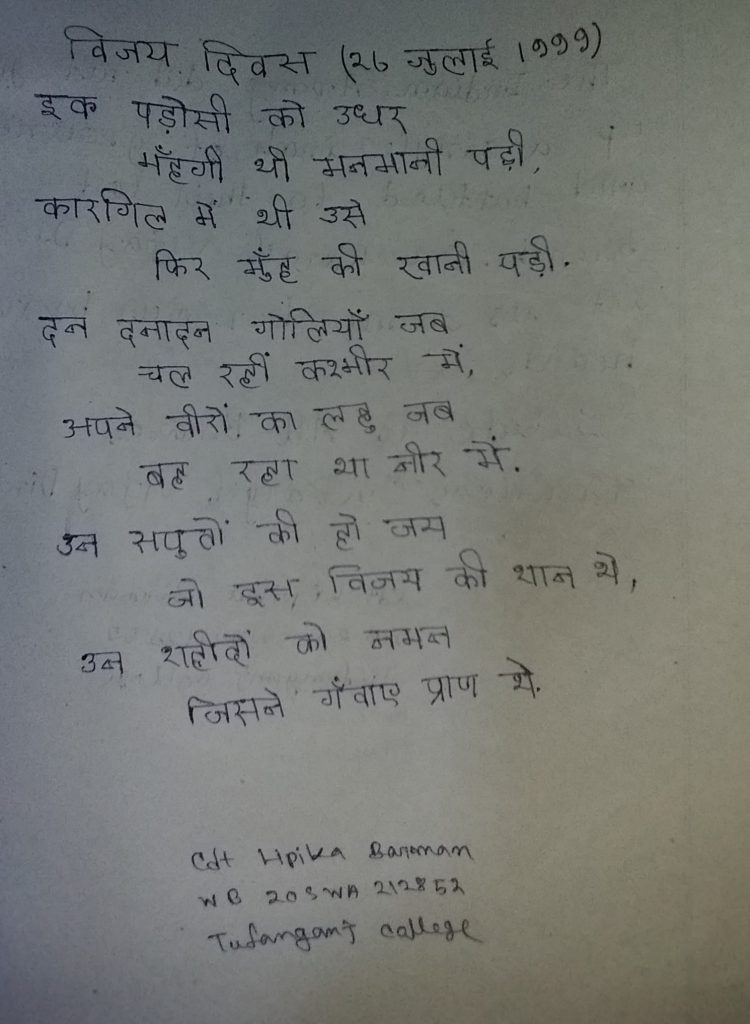 विजय दिवस (26 जुलाई 1999)
इक पड़ोसी को उधर
मँहगी थी मनमानी पड़ी,
कारगिल में थी उसे
फिर मुँह की खानी पड़ी.
दन दनादन गोलियाँ जब
चल रहीं कश्मीर में,
अपने वीरों का लहु जब
बह रहा था नीर में.
उन सपुतों की हो जय
जो इस विजय की शान थे,
उन शहीदों को नमन
जिसने गँवाए प्राण थे.
Cdt Lipika Barman
WB 20SWA 212852
Tufanganj College